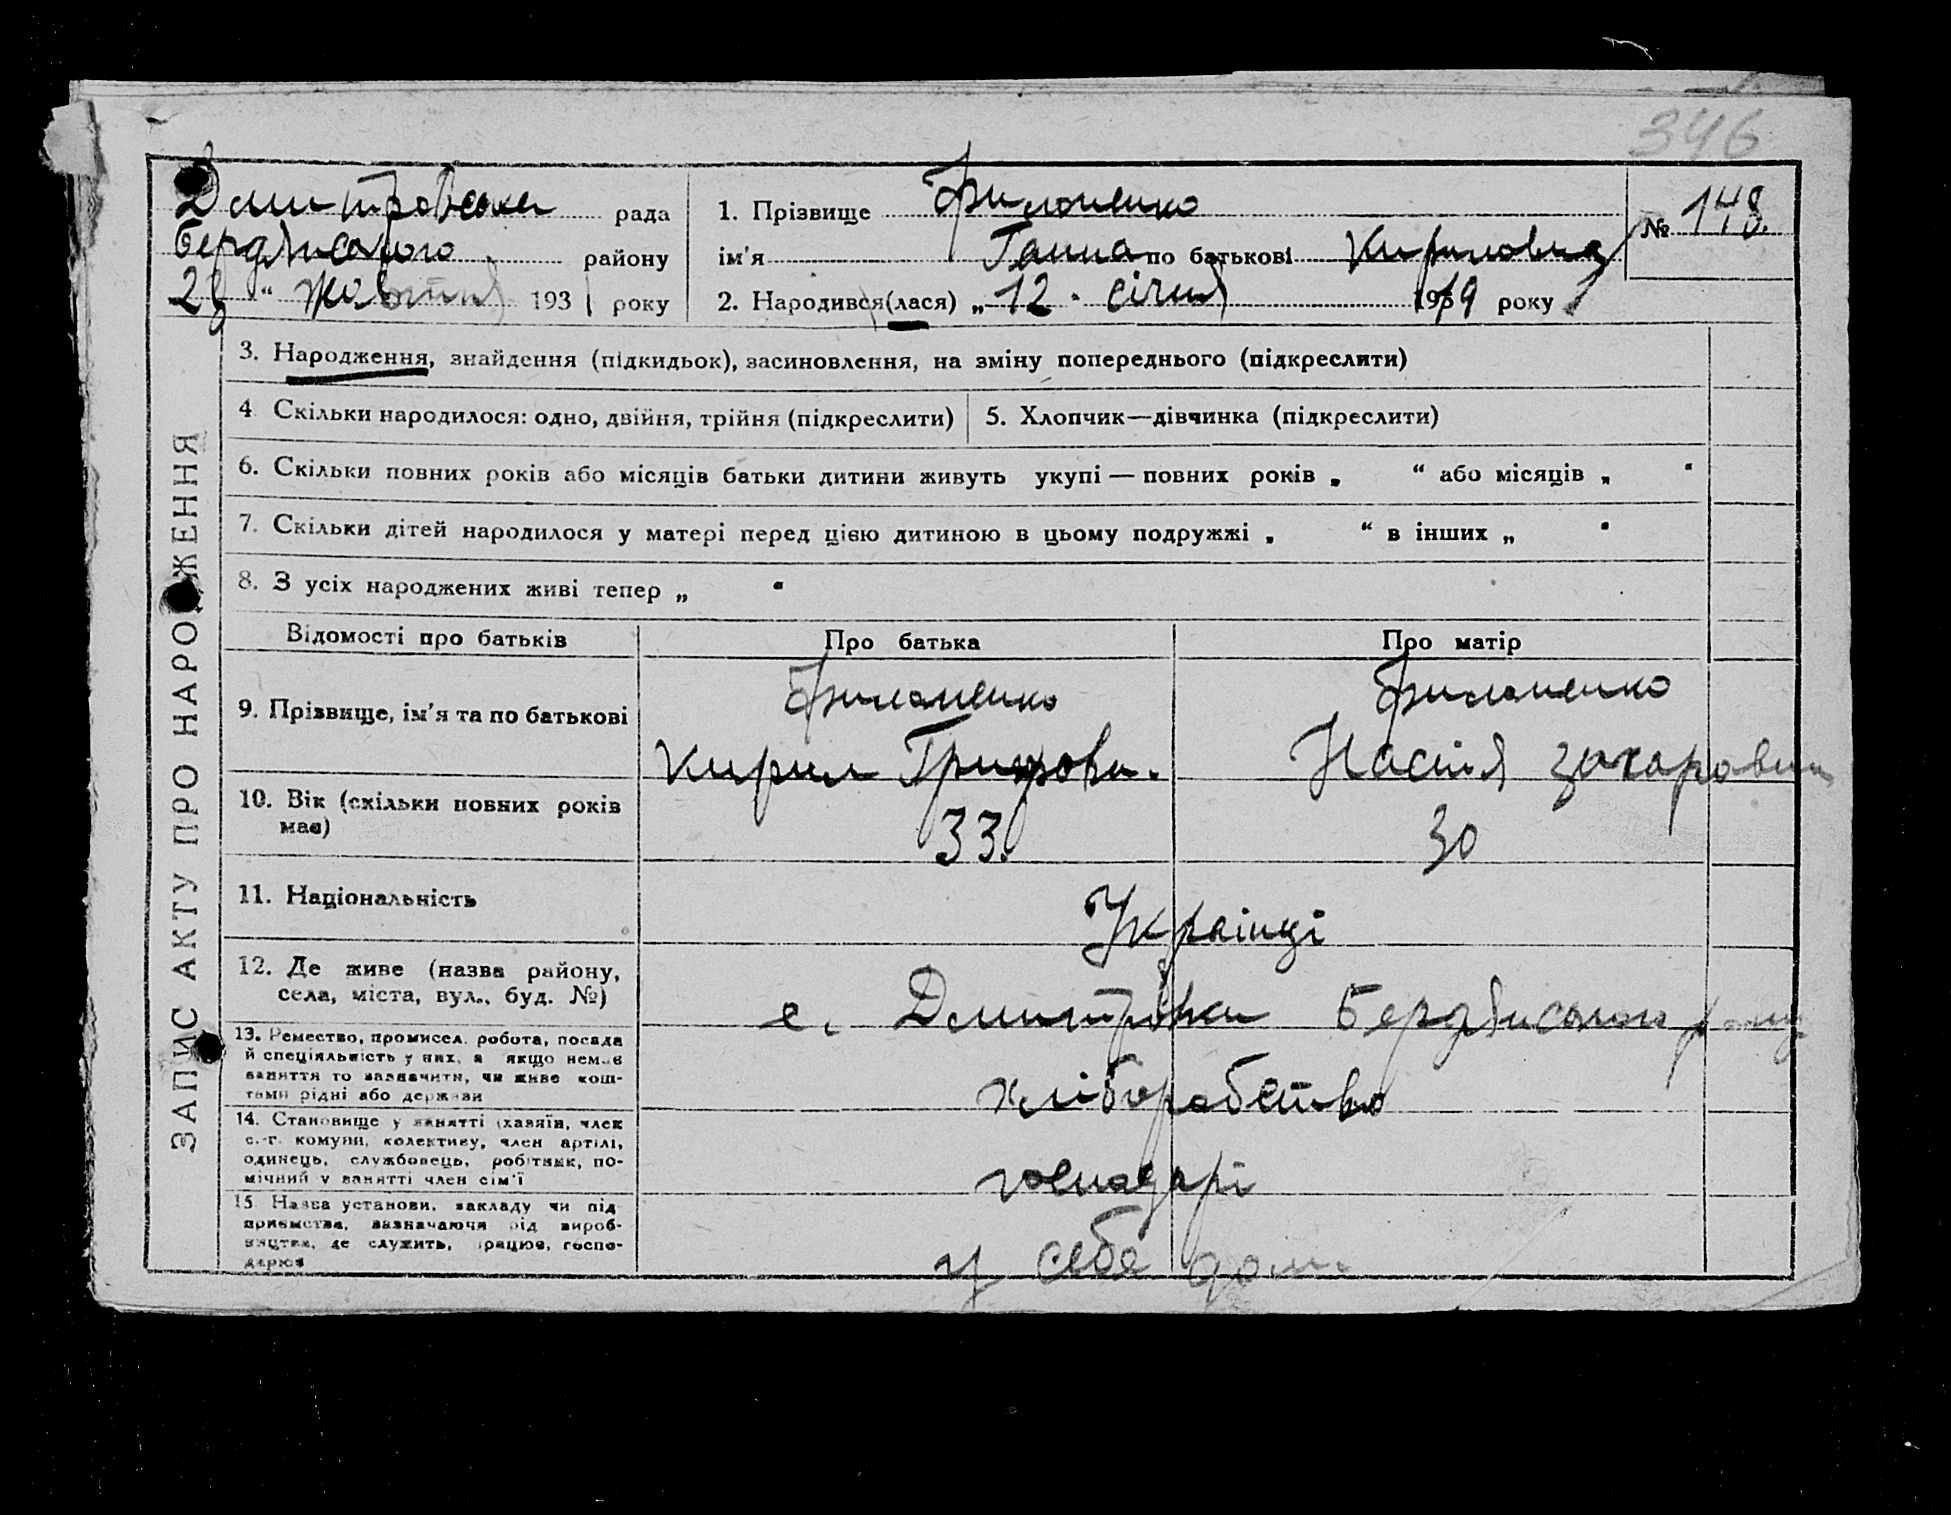 346
Дмитровська рада
Бердянського району
28 " Жовтня 1931 року
1. Прізвище Филоненко
ім'я Ганна по батькові Кириловна
№ 148.
2. Народився(лася) „ 12 " січня 1919 року
ЗАПИС АКТУ ПРО НАРОДЖЕННЯ
3. Народження, знайдення (підкидьок), засиновлення, на зміну попереднього (підкреслити)
4 Скільки народилося: одно, двійня, трійня (підкреслити)
5. Хлопчик—дівчинка (підкреслити)
6. Скільки повних років або місяців батьки дитини живуть укупі — повних років „ “ або місяців „ “
7. Скільки дітей народилося у матері перед цією дитиною в цьому подружжі „ “ в інших „ “
8. З усіх народжених живі тепер „ “
Відомості про батьків
Про батька
Про матір
9. Прізвище, ім'я та по батькові
Филоненко
Кирил
Филоненко
Настя Захаровна
10. Вік (скільки повних років
має)
33.
30
11. Національність
Українці
12. Де живе (назва району,
села, міста, вул., буд. №)
с. Дмитрівка Бердянського
13. Ремество, промисел. робота, посада
й спеціяльність у них, а якщо немає
заняття то зазначити, чи живе кош-
тами рідні або держави
хліборобство
14. Становище у занятті (хазяїн, член
с.-г. комуни, колективу, член артілі,
одинець, службовець, робітник, по-
мічний у занятті член сім'ї
господарі
15 Назва установи, закладу чи під
приємства, зазначаючи рід вироб-
ництва, де служить, працює, госпо-
дарює
у себе дома